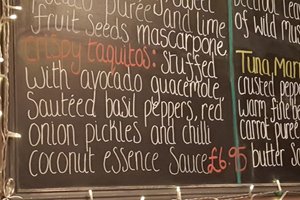 Puree and lime
fruit Seeds mascarpone.
Crispy taquitos: stuffed
with avocado guacemole
Sautéed basil peppers, red
onion pickles and chilli
coconut essence Sauce £6.95
of wild Mus
Tuna Mar
crusted pepper
warm fine be
carrot puree
butter Sa